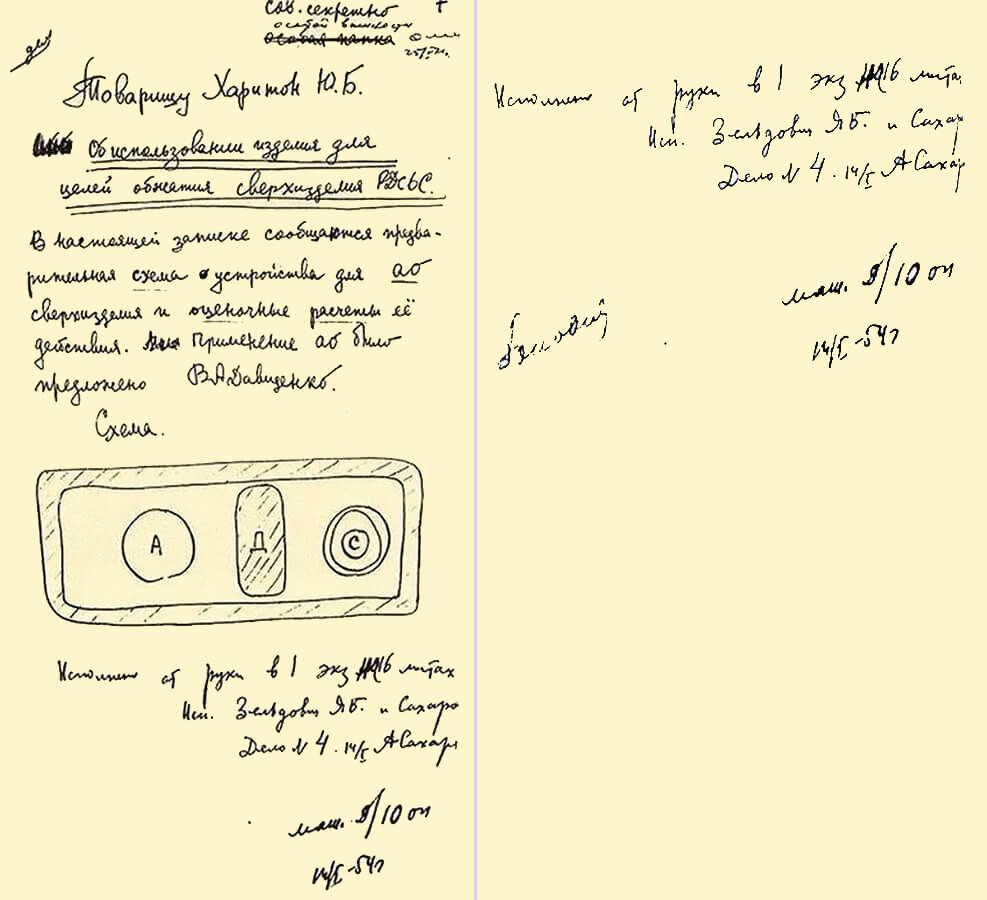 Сов. секретно
особой важности
Особая папка
Товарищу Харитон Ю.Б.
Об использовании изделия для
целей обжатия сверхизделия РДС6С.
В настоящей записке сообщаются предва-
рительная схема устройства для аб
сверхизделия и оценочные расчеты её
действия. Применение аб было
предложено В.А.Давиденко.
Схема.
А
Д
С
Исполнено от руки в 1 экз 16 листах
Исп. Зельдович Я.Б. и Сахаро
Дело N 4. 14/I АСахаро
маш. 10
14/I-54г
Исполнено от руки в 1 экз 16 листа
Исп. Зельдович Я.Б. и Сахар
Дело N 4. 14/I АСахар
маш. 10
14/I-54г